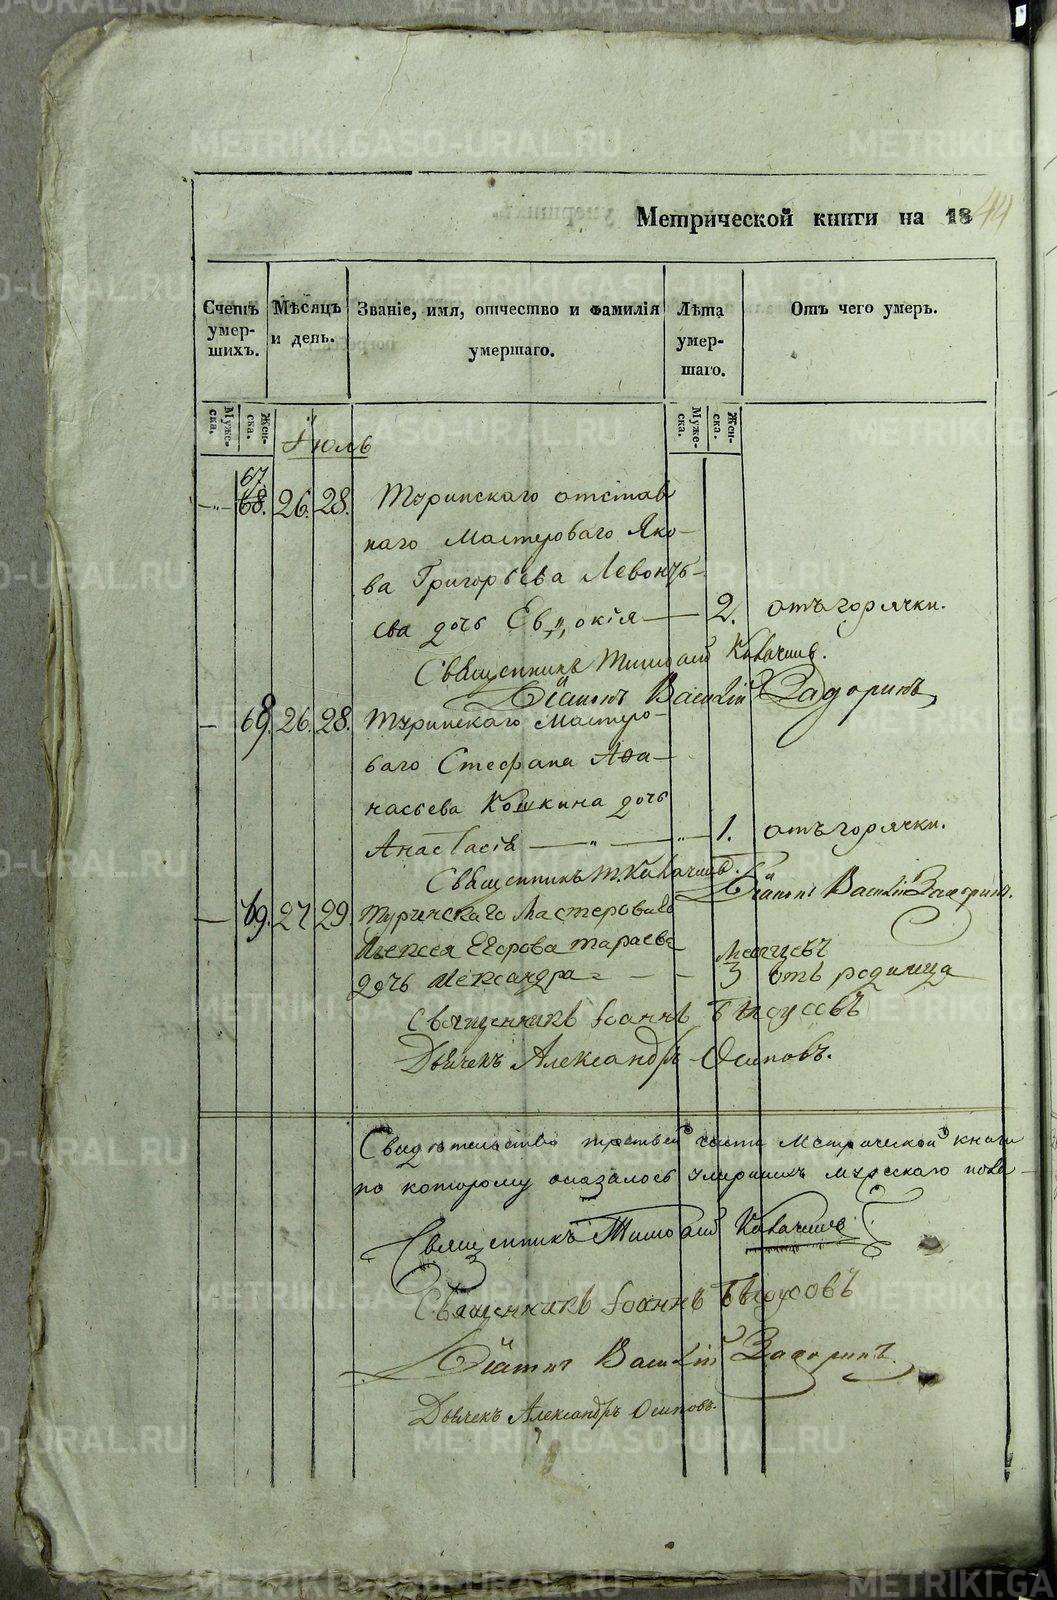 Метрической книги на 1844
Счетъ умершихъ.
Мѣсяцъ и день.
Званіе, имя, отчество и фамилія умершаго.
Лѣта умершаго.
Отъ чего умеръ.
Мужеска.
Женска.
Мужеска.
Женска.
Іюль
67.
68. 26. 28. Туринскаго отстав
наго Мастероваго Яко-
ва Григорьева Левонть-
ева дочь Евдокія 2. отъ горячки.
Священникъ Тимоѳей
Діаконъ Василій Задоринъ
68. 26. 28. Туринскаго Мастеро-
ваго Стефана Афа-
насьева Кошкина дочь
Анастасія 1. отъ горячки.
Священникъ Т. Діаконъ Василій Задоринъ.
69. 27 29. Туринскаго Мастероваго
Алексея Егорова Тараева Месяцевъ
дочь Александра 3 отъ родимца
Священникъ Іоаннъ Бѣлоусовъ
Дьячекъ Александръ Осиповъ.
Свидѣтельство третьей части Метрической книги
по которому оказалось умершихъ мужескаго пола
Священникъ Тимоѳей
Священникъ Іоаннъ Бѣлоусовъ
Діаконъ Василій Задоринъ.
Дьячекъ Александръ Осиповъ.
METRIKI.GASO-URAL.RU